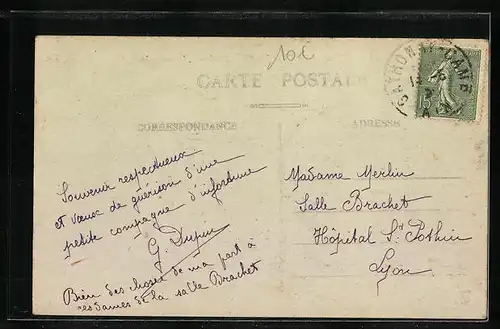 10c
CARTE POSTALE
CORRESPONDANCE
ADRESSE
SATHONAY-CAMP
15
Souvenir respectueux
et vœux de guérison d'une
petite compagne d'infortune
G. Dupuy
Bien des choses de ma part à
ces dames de la salle Brachet
Madame Merlin
Salle Brachet
Hôpital St Pothin
Lyon